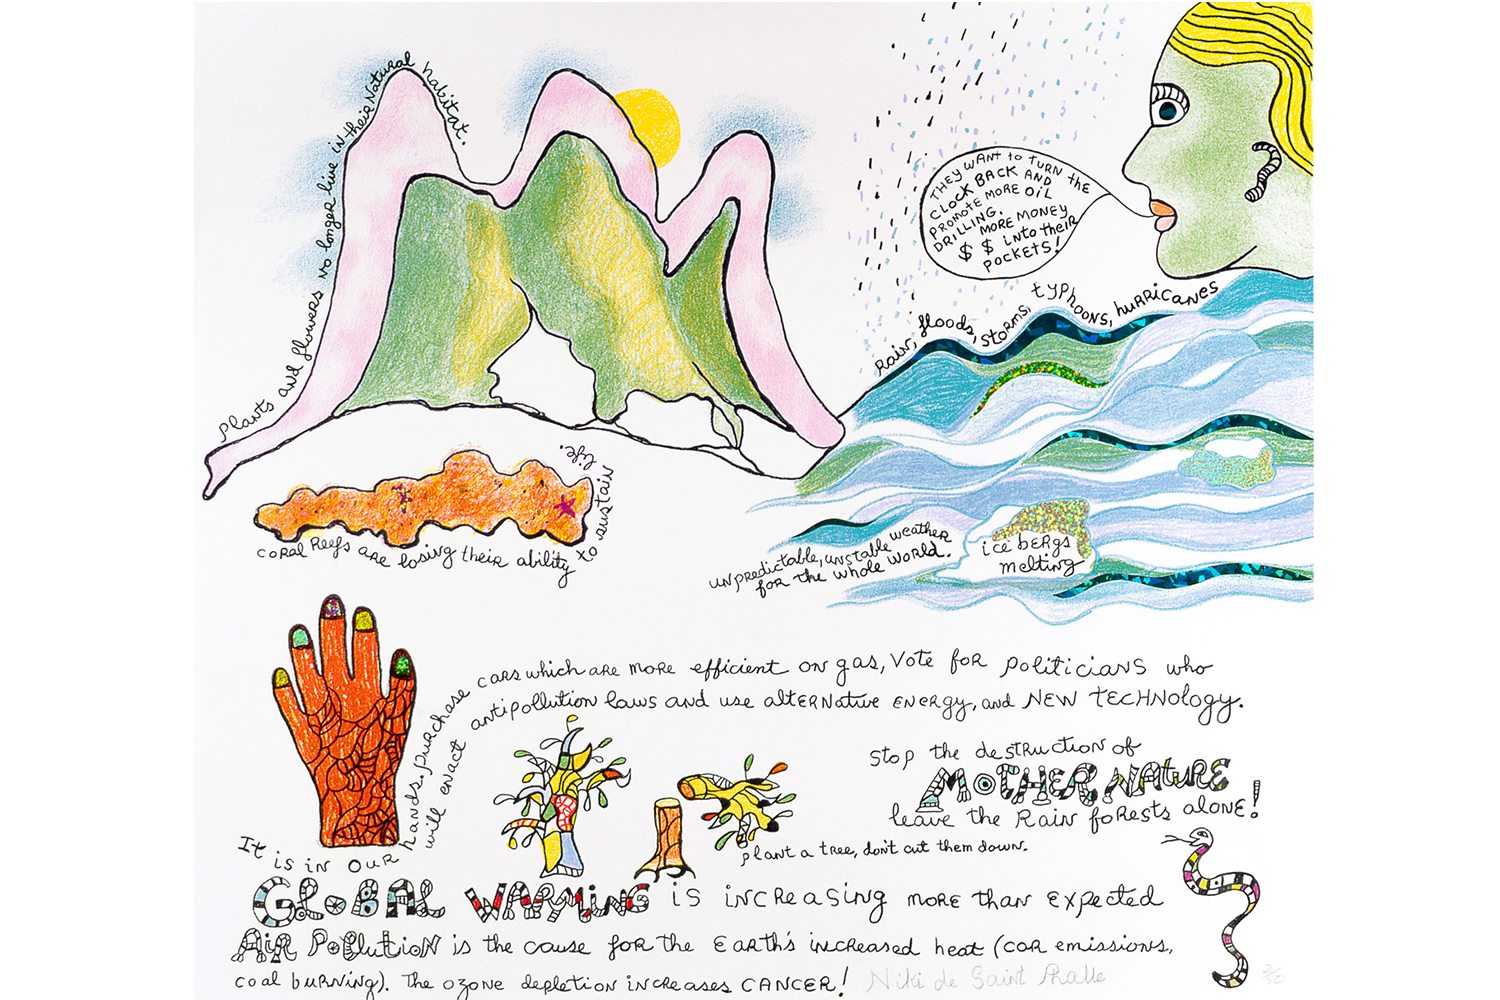 Plants and flowers no longer live in their natural habitat.
THEY WANT to TURN THE
CLOCK BACK AND
PROMOTE MORE OIL
DRILLING.
MORE MONEY
$ $ into their
POCKETS!
Rain, floods, storms, typhoons, hurricanes
coral reefs are losing their ability to sustain
life.
unpredictable, unstable weather
for the whole world.
ice bergs
melting
It is in our hands. purchase cars which are more efficient on gas, Vote for politicians who
will enact antipollution laws and use alternative energy, and NEW TECHNOLOGY.
Stop the destruction of
MOTHER NATURE
leave the Rain forests alone!
plant a tree, don't cut them down.
GLOBAL WARMING is increasing more than expected
AIR POLLUTION is the cause for the Earth's increased heat (car emissions,
coal burning). The ozone depletion increases CANCER! Niki de Saint Phalle